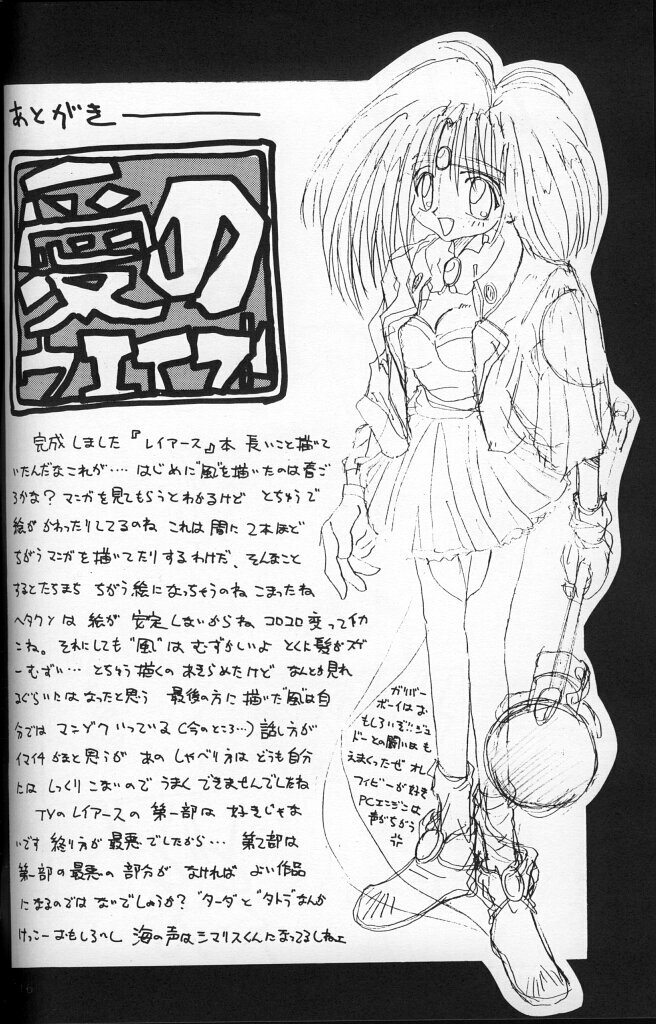 あとがき
愛の
ウエイブ
完成しました『レイアース』本 長いこと描いて
いたんだなこれが‥‥ はじめに"風"を描いたのは春ご
ろかな？マンガを見てもらうとわかるけど とちゅうで
絵が かわったりしてるのね これは間に2本ほど
ちがうマンガを描いてたりするわけだ、そんなこと
するとたちまち ちがう絵になっちゃうのね こまったね
ヘタクソは 絵が 安定しないからね コロコロ変って
こね。それにしても"風"は むずかしいよ とくに髪がスゲ
ーむずい‥‥ とちゅう描くの あきらめたけど なんとか見れ
るぐらいには なったと思う 最後の方に描いた"風"は自
分では マンゾク いっている(今のところ…)話し方が
イマイチかなと思うが あの しゃべり方は どうも自分
には しっくり こないので うまく できませんでしたね
TVのレイアースの 第一部は 好きじゃな
いです 終り方が最悪でしたから‥‥ 第2部は
第一部の最悪の 部分が なければ よい作品
になるのでは ないでしょうか？"ターダ"と"タトラ"なんか
けっこーおもしろいし 海の声はシマリスくんになってるしねェ
ガリバー
ボーイは お
もしろいぞ!!ジュ
ドーとの闘いはも
えまくったぜ オレ
フィビーが好き
PCエンジンは
声がちがう
16